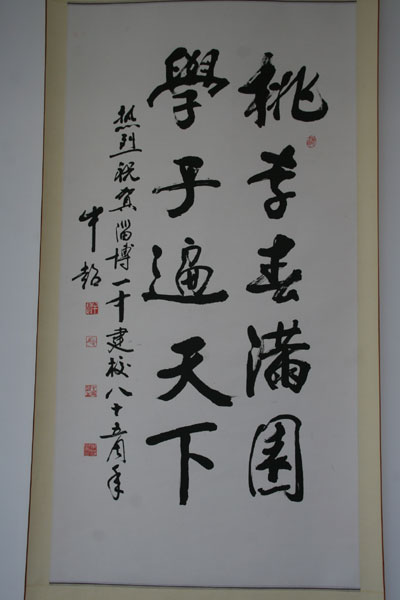 桃李春满園
學子遍天下
热烈祝贺淄博一中建校八十五周年